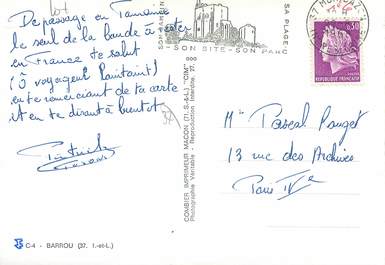 lot
De passage en Touraine
le seul de la bande à rester
en France te salut
(ô voyageur lointain!)
en te remerciant de ta carte
et en te disant à bientôt
SON SITE - SON PARC
SA PLAGE
0,30
REPUBLIQUE FRANCAISE
COMBIER IMPRIMEUR MACON (71. S.-&-L.) "CIM"
Photographie Véritable - Reproduction Interdite
Mr Pascal Pauget
13 rue des Archives
Paris IVe
C-4 - BARROU (37. I.-et-L.)